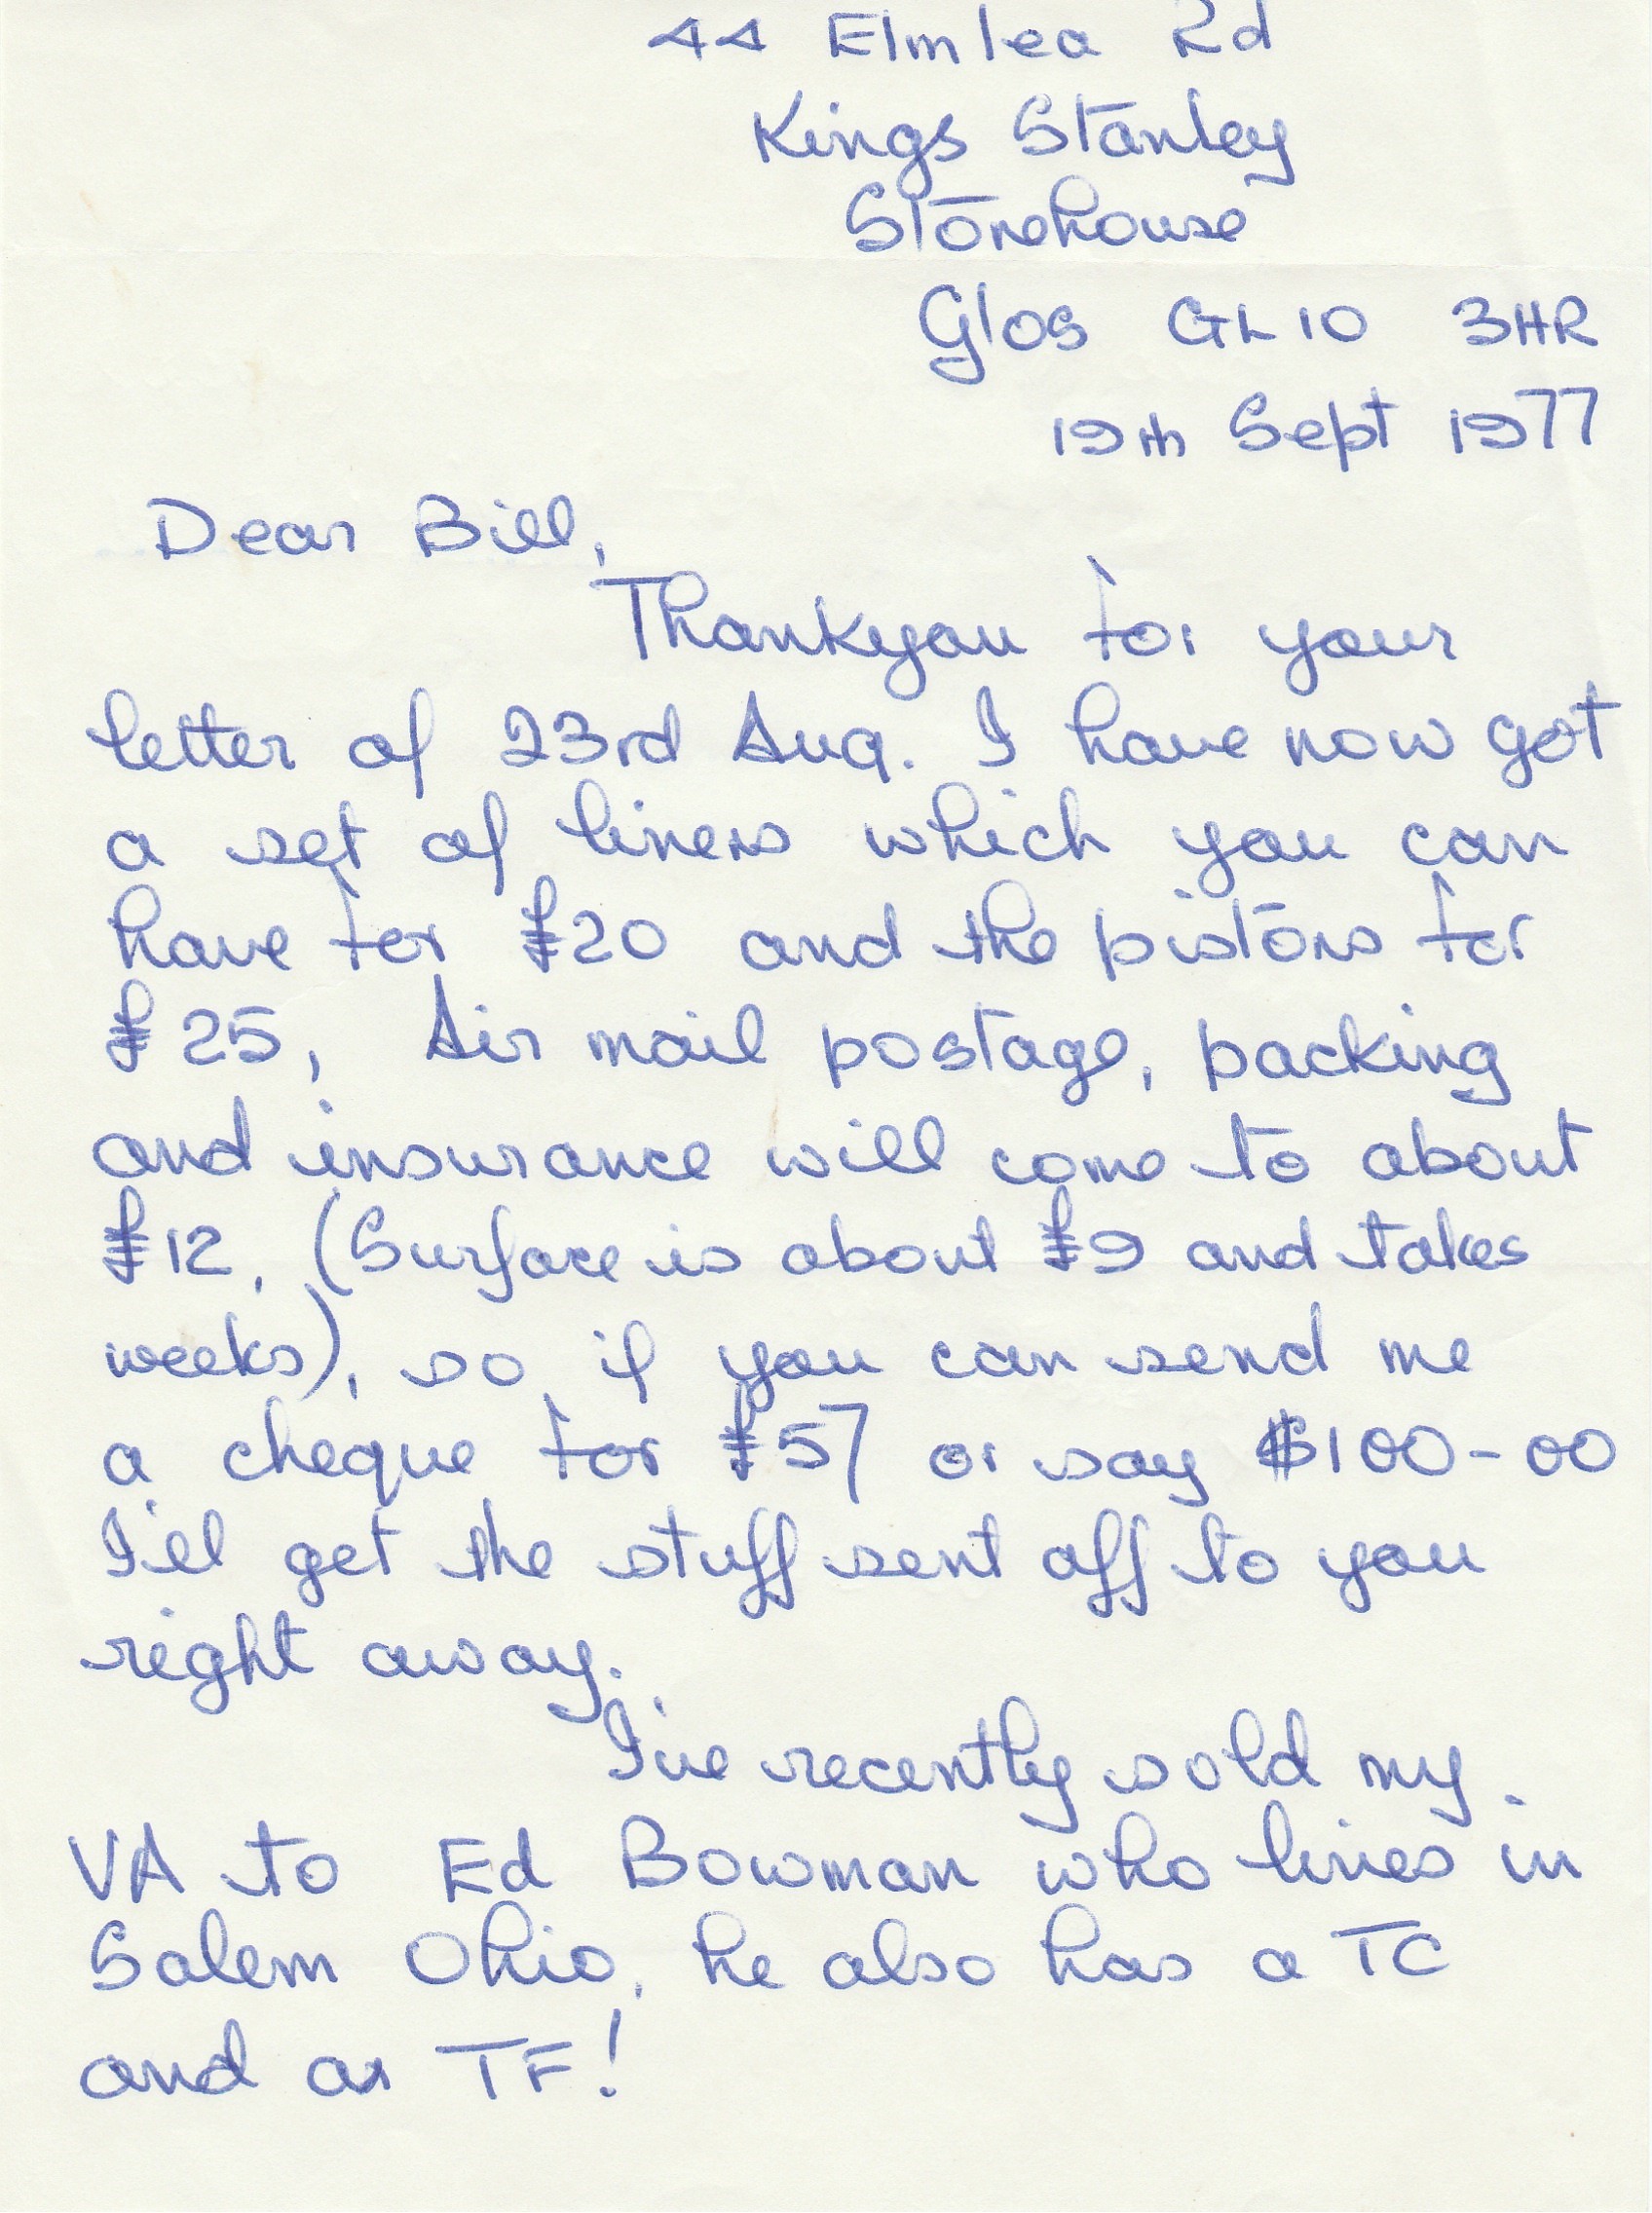 44 Elmlea Rd
Kings Stanley
Stonehouse
Glos GL10 3HR
19th Sept 1977
Dear Bill,
Thankyou for your
letter of 23rd Aug. I have now got
a set of liners which you can
have for £20 and the pistons for
£25, Air mail postage, packing
and insurance will come to about
£12. (Surface is about £9 and takes
weeks), so if you can send me
a cheque for £57 or say $100-00
I'll get the stuff sent off to you
right away.
I've recently sold my
VA to Ed Bowman who lives in
Salem Ohio, he also has a TC
and an TF!